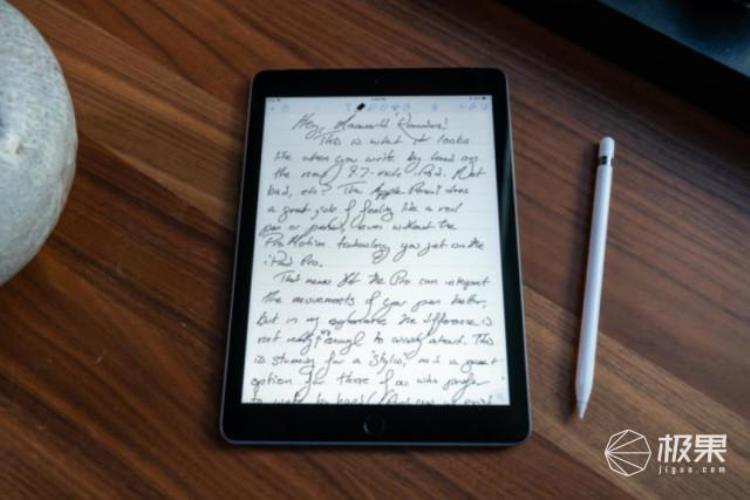 Hey, Macworld Readers!
This is what it looks
like when you write by hand on
the new 9.7-inch iPad. Not
bad, eh? The Apple Pencil does
a great job of feeling like a real
pen or pencil, even without the
ProMotion technology you get on the
iPad Pro.
That means that the Pro can interpret
the movements of your pen better,
but in my experience the difference is
not really enough to worry about. This
is stunning for a "stylus," and a great
option for those of us who prefer
to write by hand
极果
jiguo.com